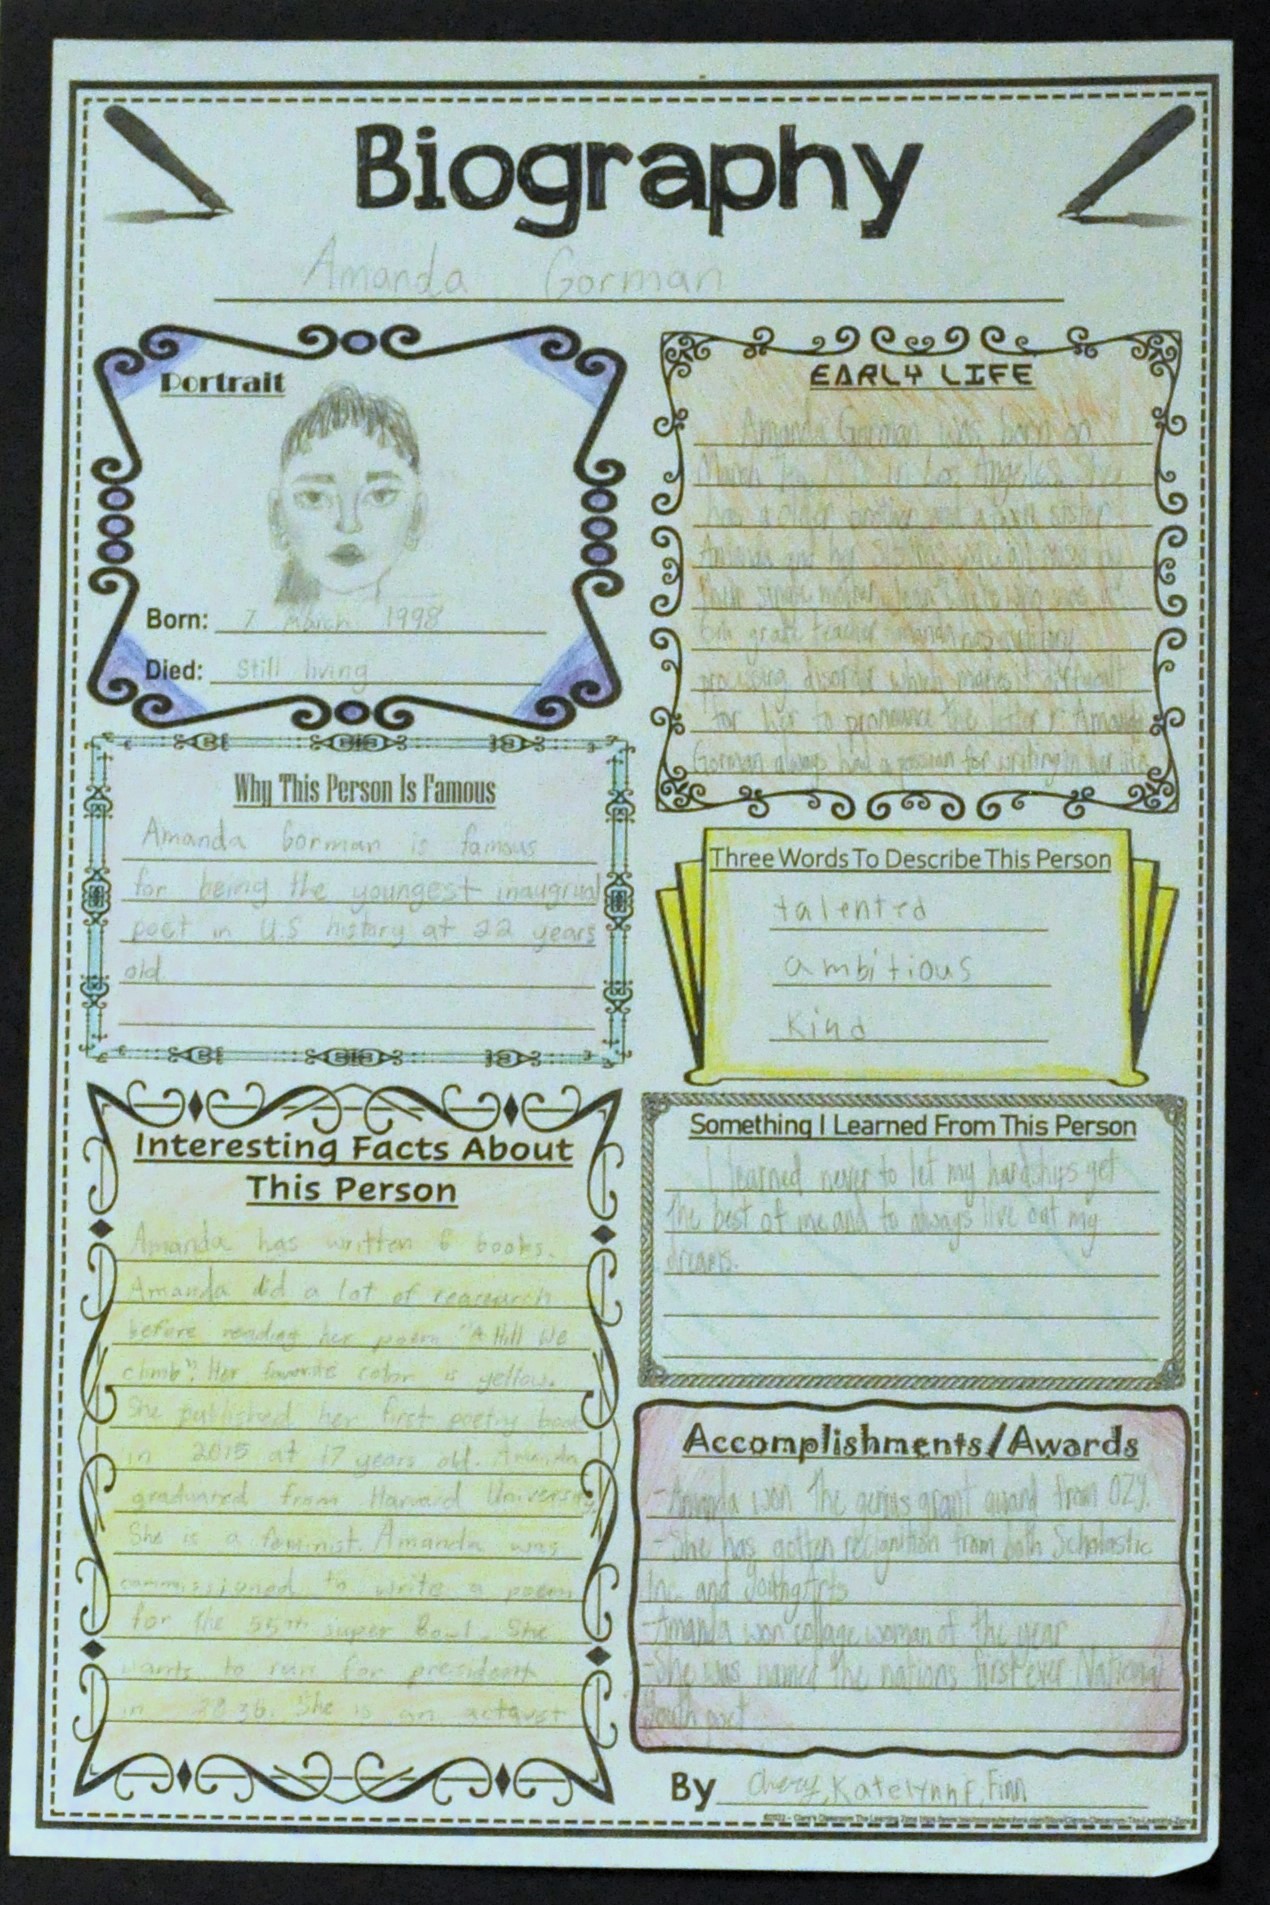 Biography
Amanda Gorman
Portrait
Born: 7 March 1998
Died: Still living
EARLY LIFE
Amanda Gorman was born on
March in Los Angeles. She
has a older brother and a twin sister.
Amanda and her siblings were all raised by
their single mother, Joan Wicks who was a
6th grade teacher. Amanda has auditory
processing disorder which makes it difficult
for her to pronounce the letter r. Amanda
Gorman always had a passion for writing in her life
Why This Person Is Famous
Amanda Gorman is famous
for being the youngest inaugrual
poet in U.S history at 22 years
old.
Three Words To Describe This Person
talented
ambitious
kind
Interesting Facts About
This Person
Amanda has written 6 books.
Amanda did a lot of reasearch
before reading her poem "A Hill We
climb". Her favorite color is yellow.
She published her first poetry book
in 2015 at 17 years old. Amanda
graduated from Harvard University.
She is a feminist. Amanda was
commissioned to write a poem
for the 55th super Bowl. She
wants to run for president
in 2036. She is an activist
Something I Learned From This Person
I learned never to let my hardships get
the best of me and to always live out my
dreams.
Accomplishments/Awards
-Amanda won the genius grant award from OZY.
-She has gotten recignition from both Scholastic
Inc. and YoungArts
-Amanda won collage woman of the year
-She was named the nations first ever National
Youth poet
By Katelynn F, Finn